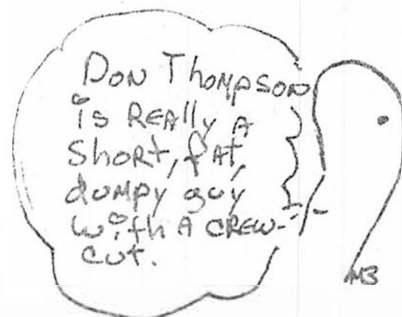 Don Thompson
is REAlly A
short, fAt,
dumpy guy
with A cREW-
cut.
M3